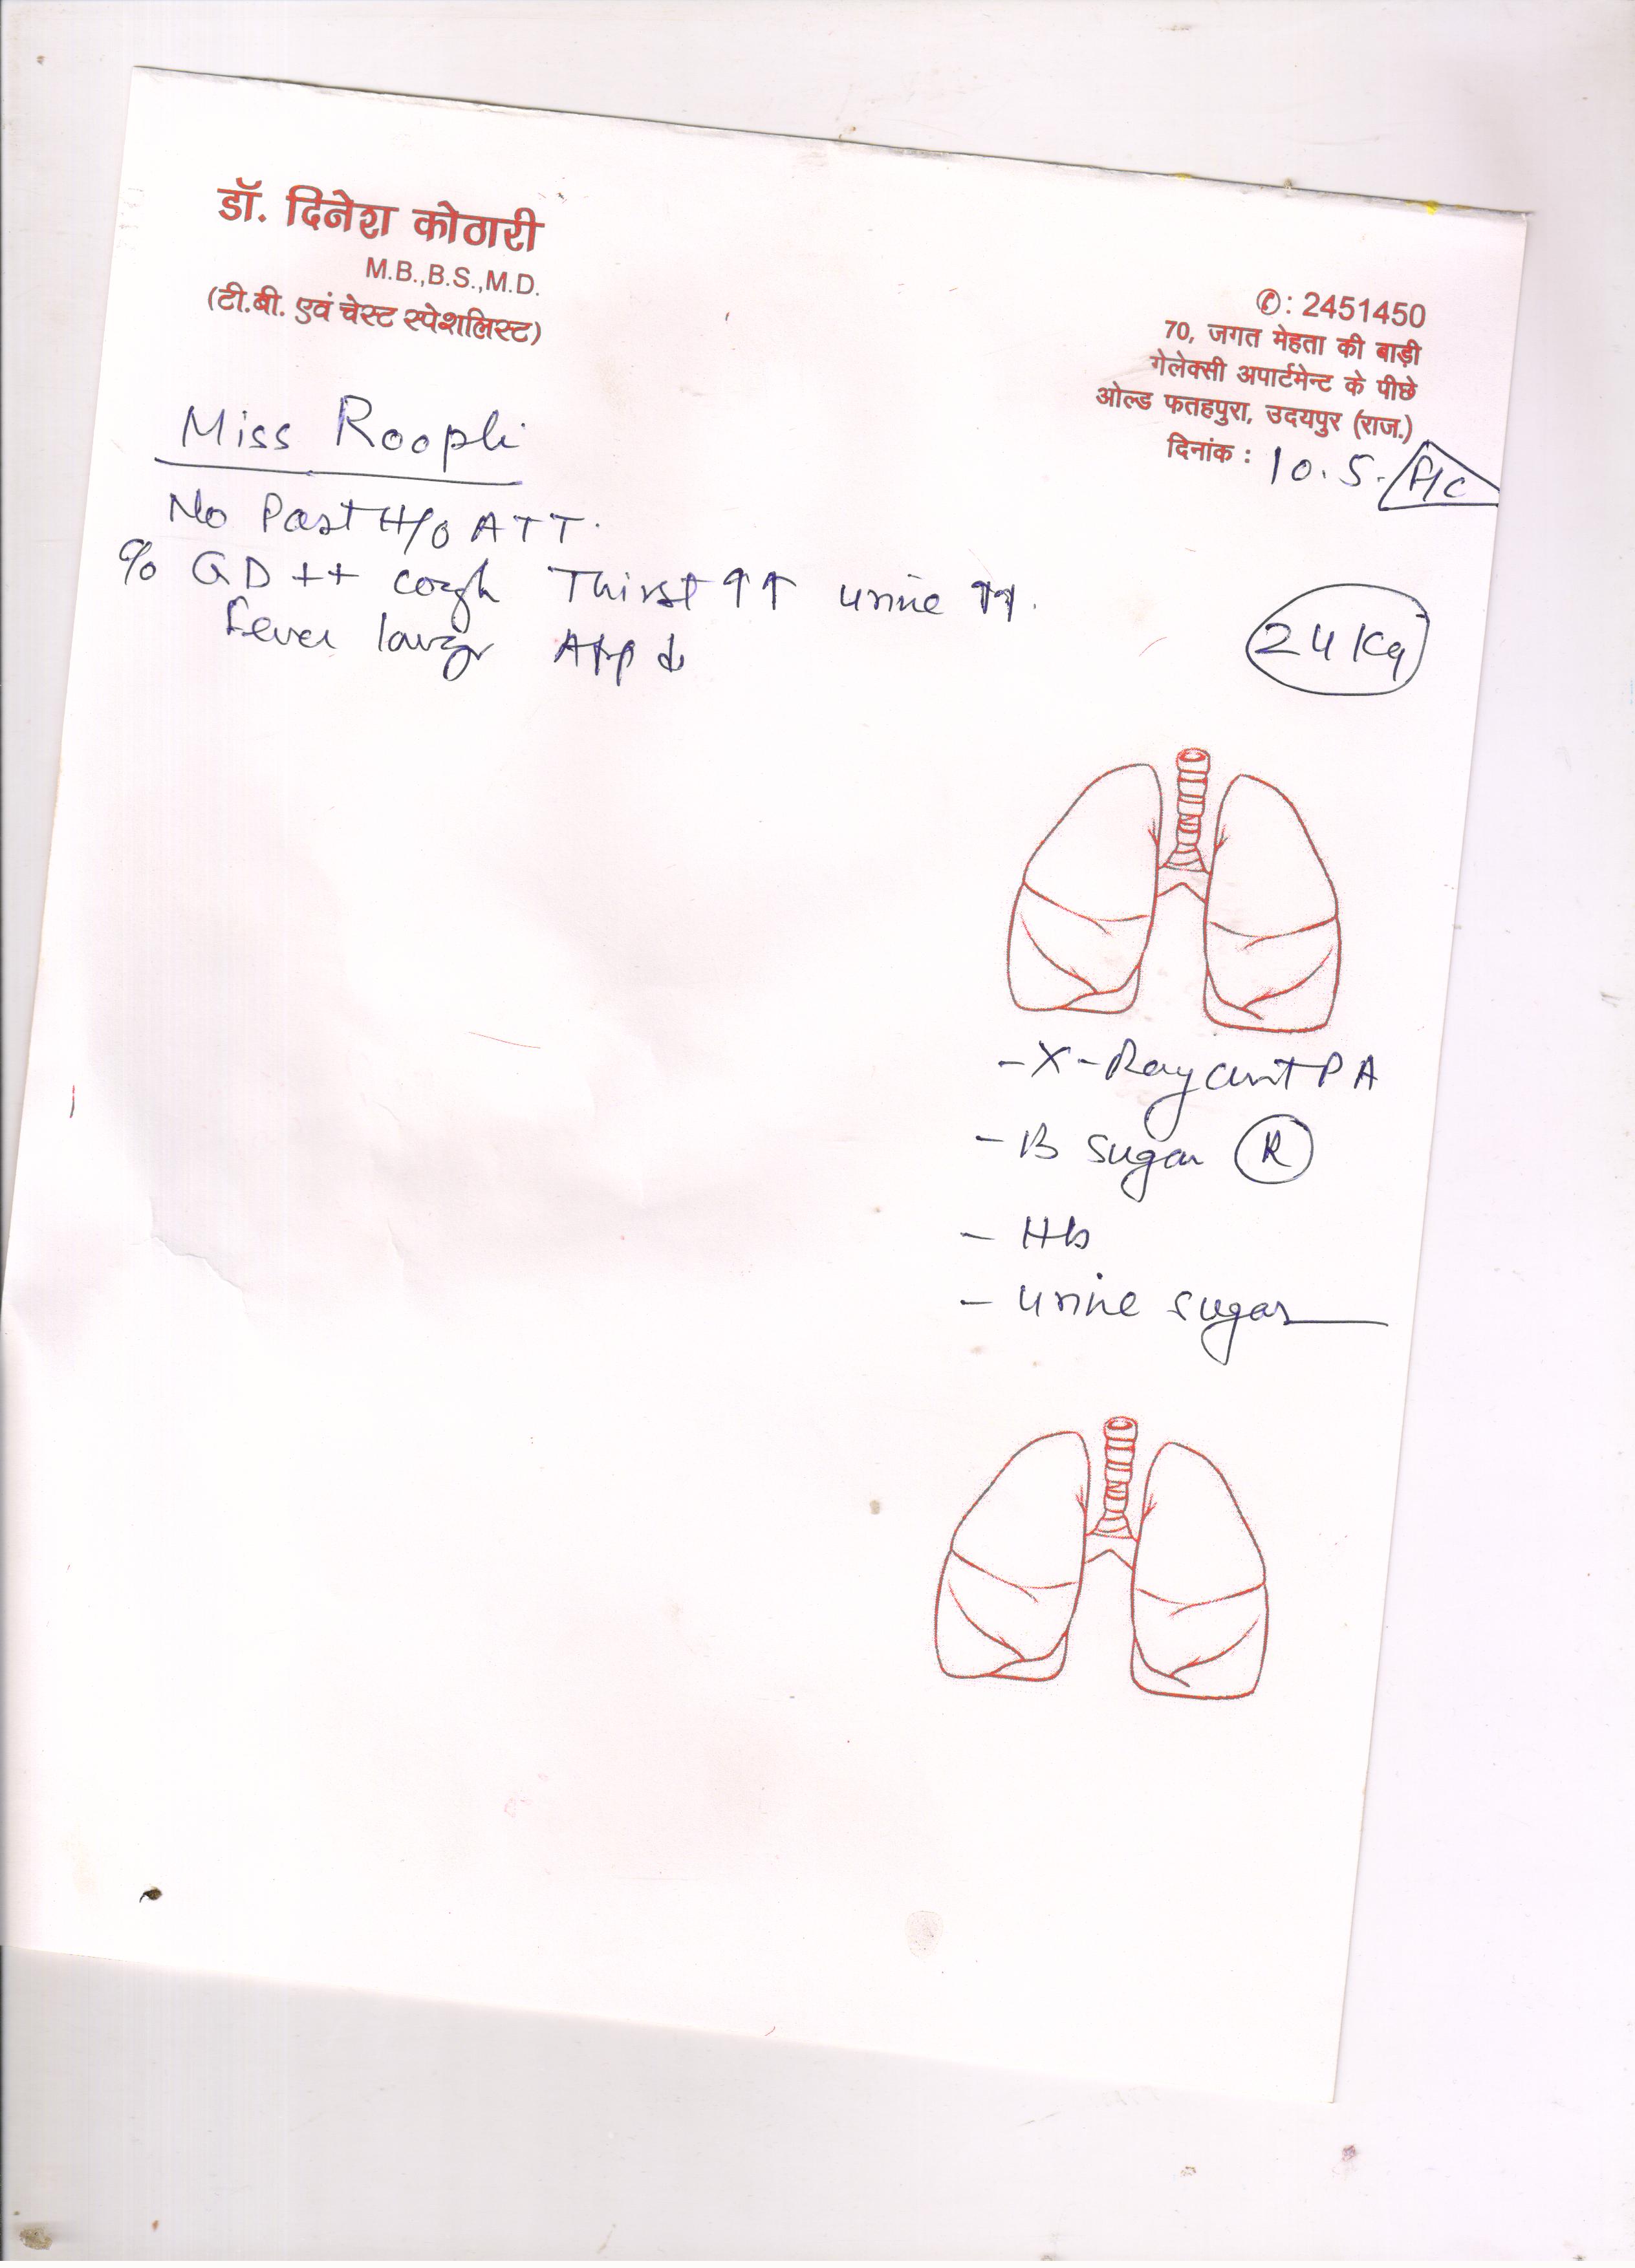 डॉ. दिनेश कोठारी
M.B.,B.S.,M.D.
(टी.बी. एवं चेस्ट स्पेशलिस्ट)
✆: 2451450
70, जगत मेहता की बाड़ी
गेलेक्सी अपार्टमेन्ट के पीछे
ओल्ड फतहपुरा, उदयपुर (राज.)
दिनांक : 10.5.
Miss Roopli
No Past H/O ATT.
c/o GD ++ cough Thirst ↑↑ urine ↑↑.
fever App ↓
24 Kg
- X-Ray chest PA
- B sugar (R)
- Hb
- urine sugar